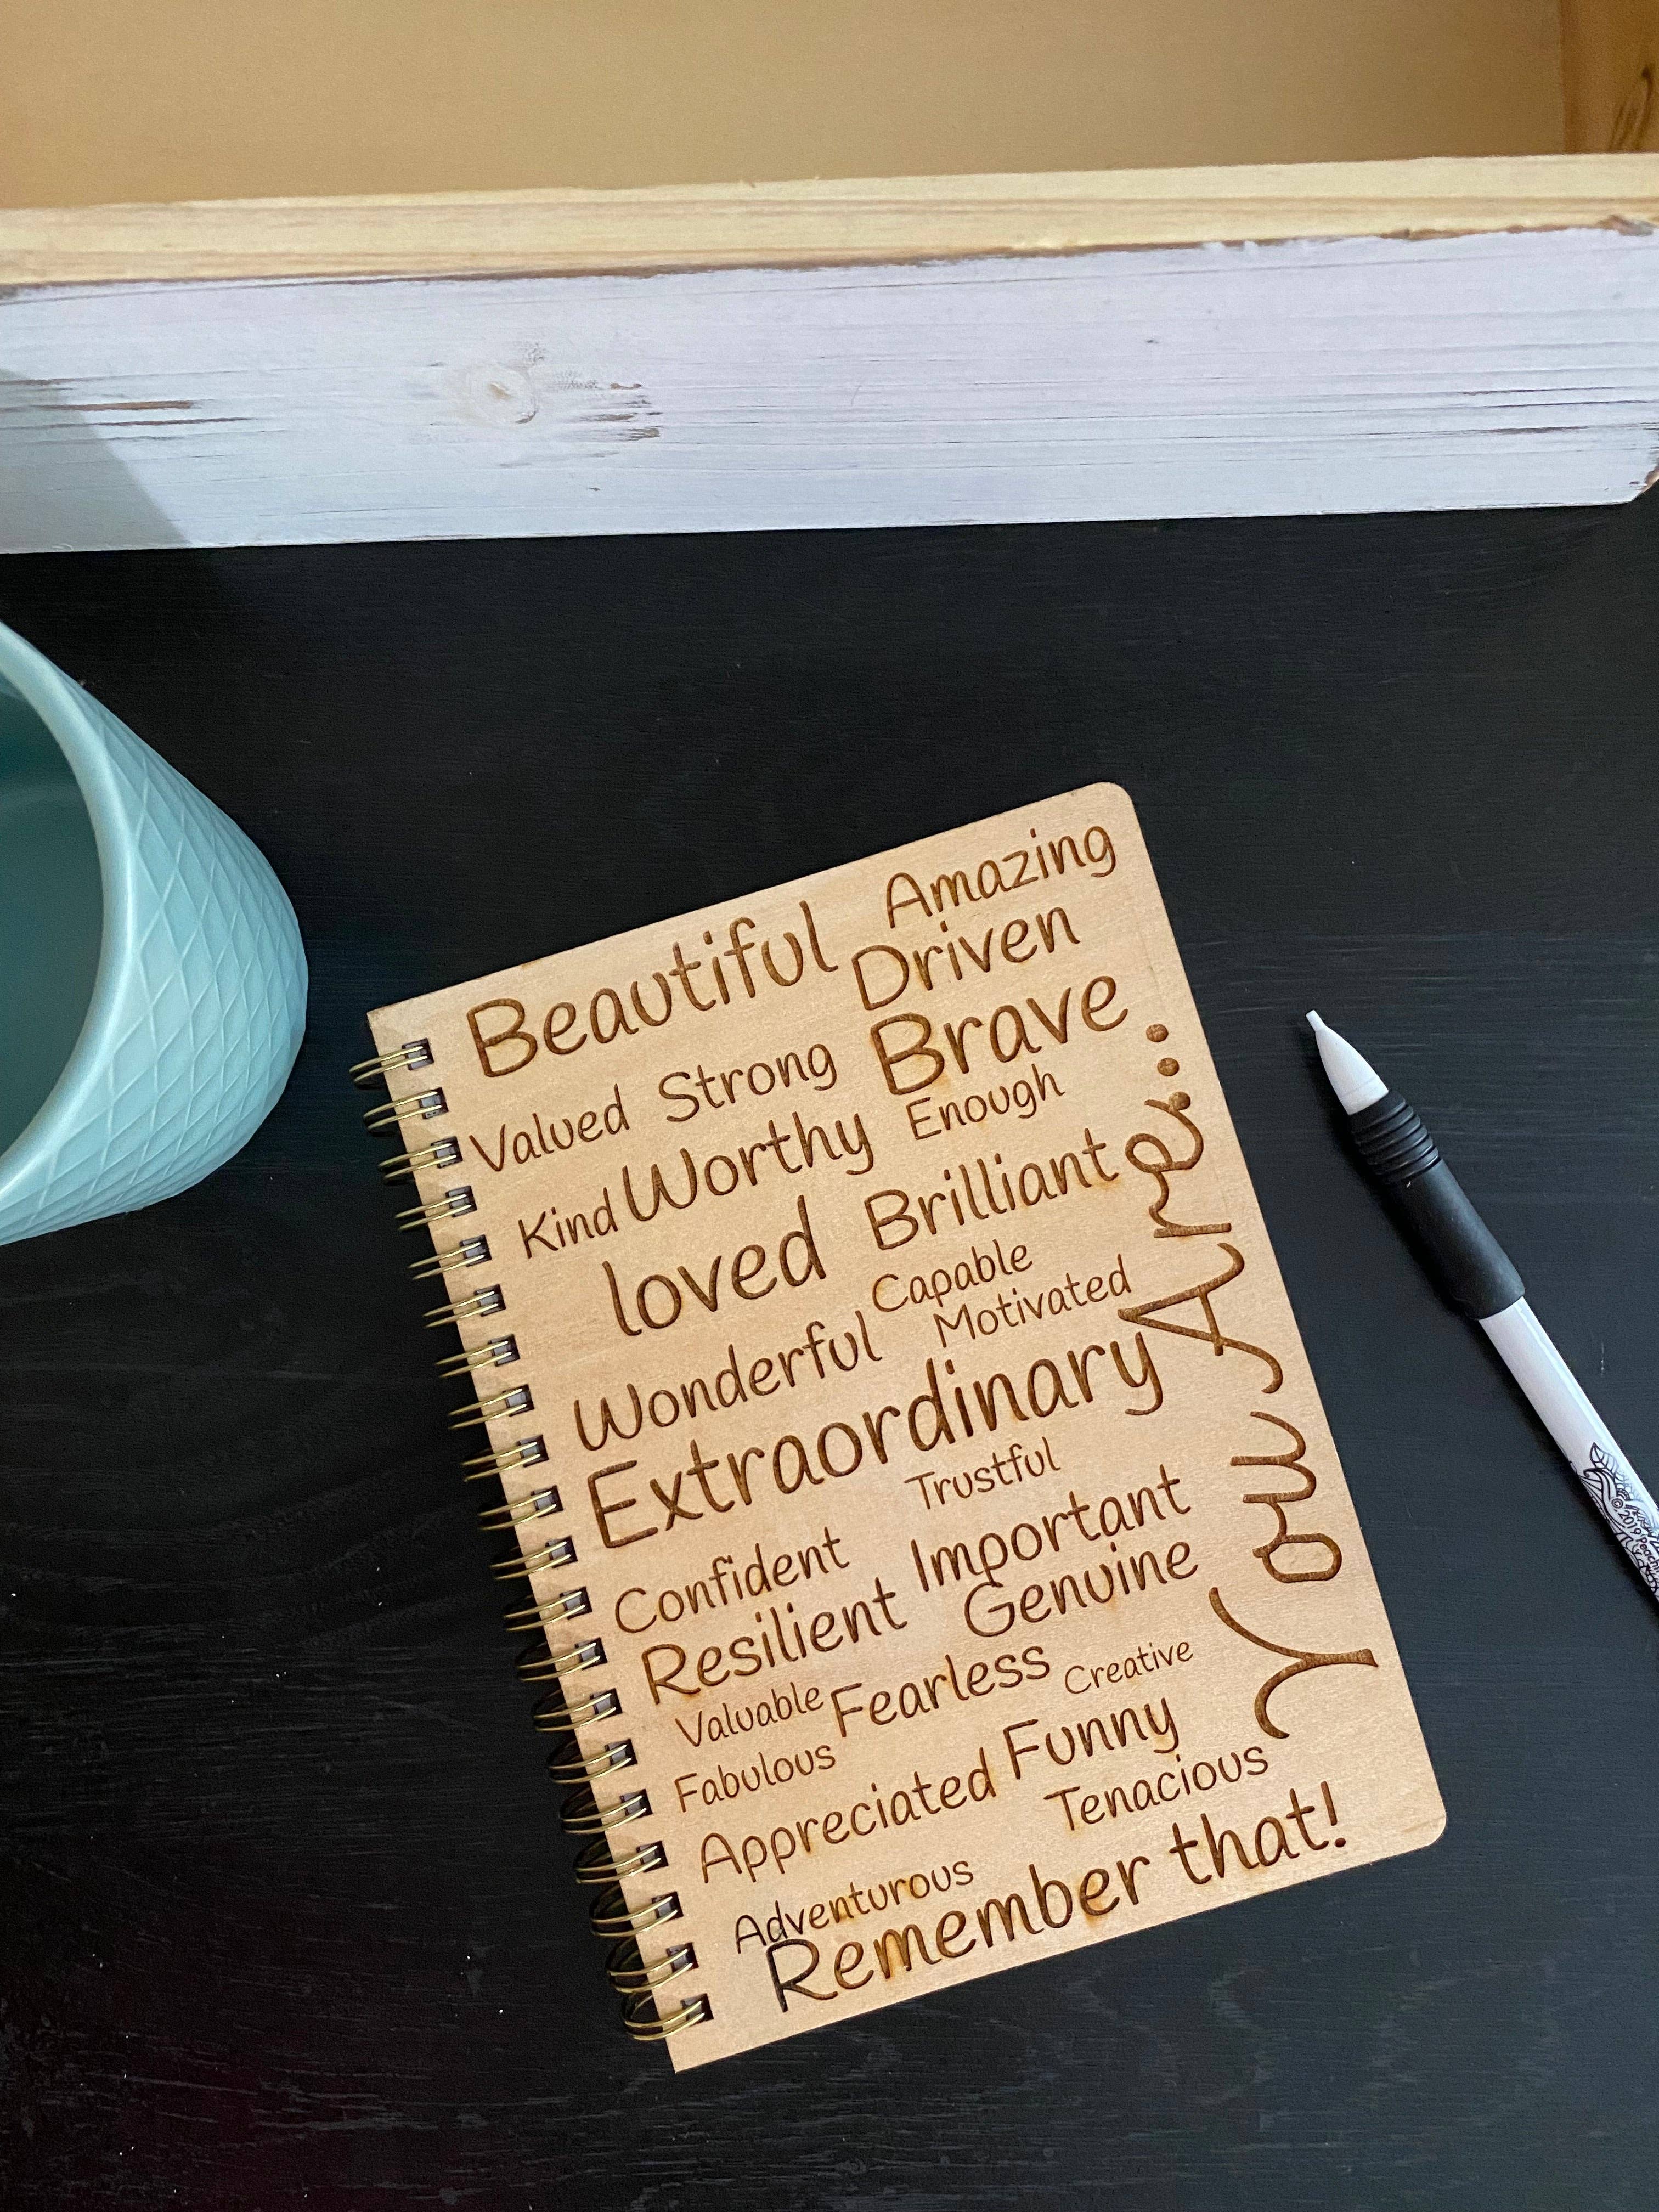 Beautiful Amazing
Driven
Valued Strong Brave
Kind Worthy Enough
loved Brilliant
Capable
Wonderful Motivated
Extraordinary
Trustful
Confident Important
Resilient Genuine
Valuable Fearless Creative
Fabulous
Appreciated Funny
Tenacious
Adventurous
Remember that!
You Are...
© 2019